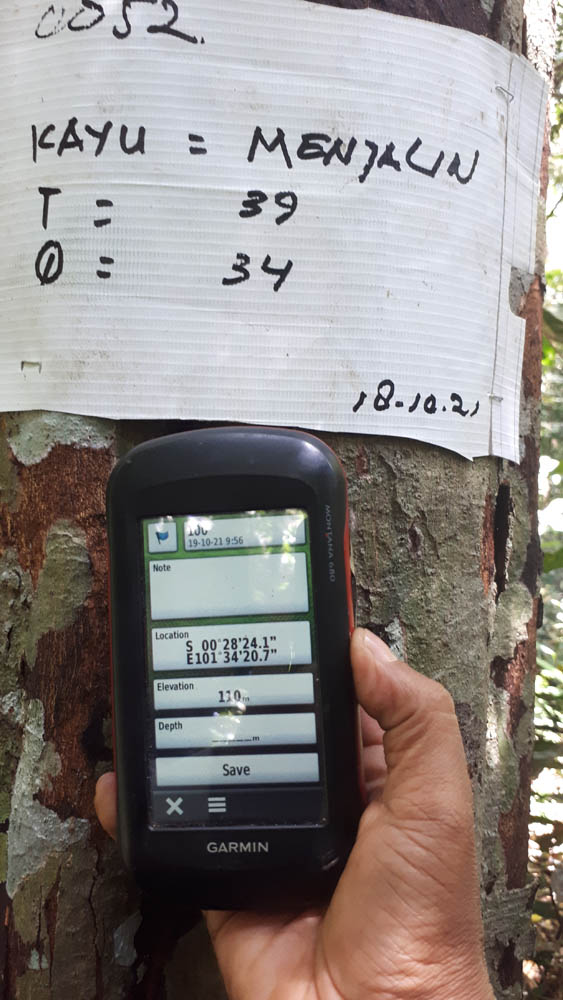 0052.
KAYU = MENJALIN
T = 39
Ø = 34
18-10.21
MONTANA 680
100
19-10-21 9:56
Note
Location
S 00°28'24.1"
E101°34'20.7"
Elevation
110m
Depth
_____m
Save
GARMIN